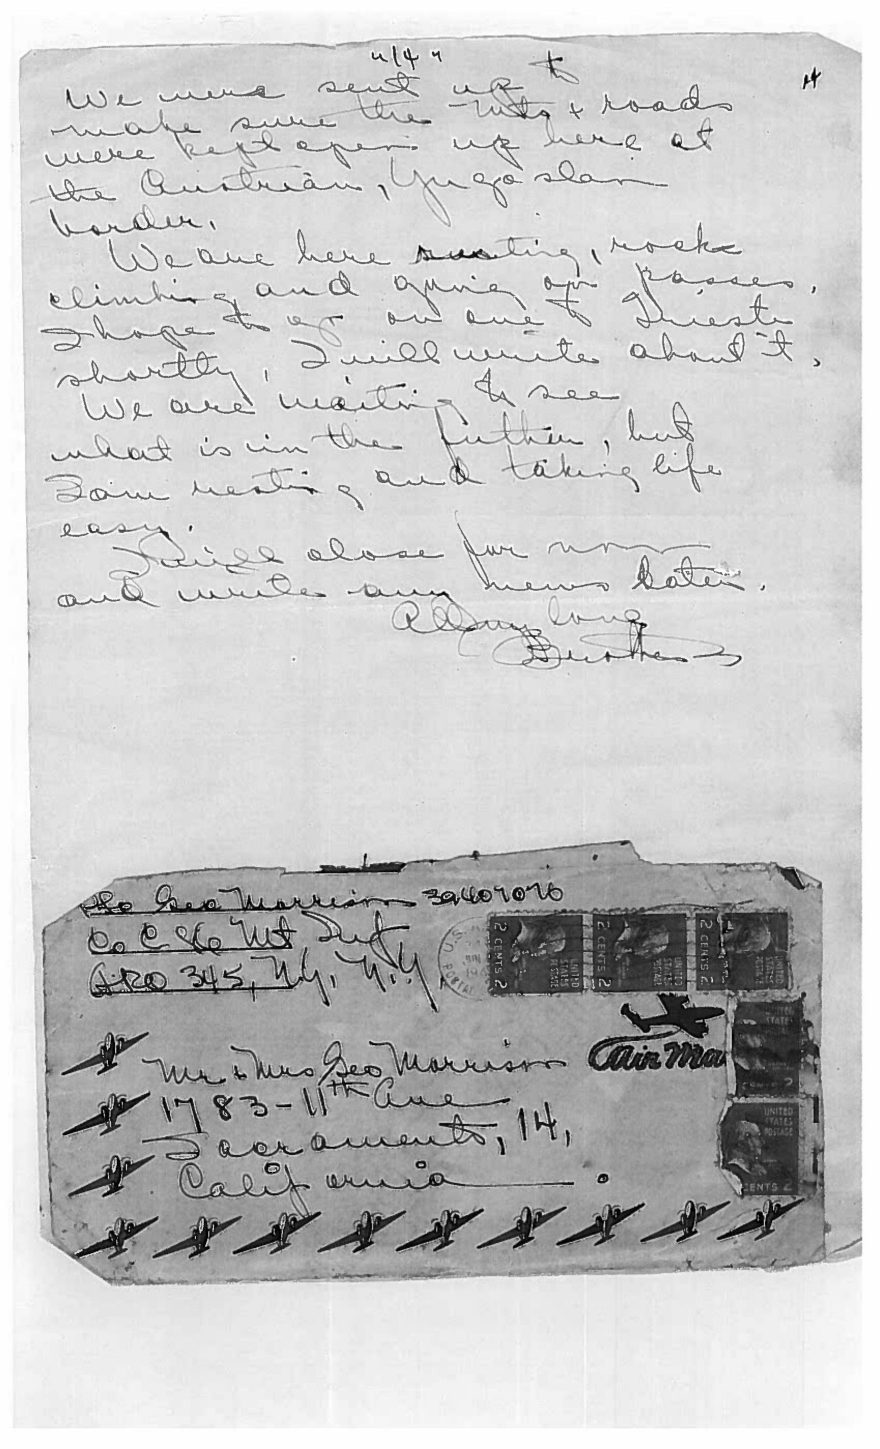 4/4
We were sent up to
make sure the Mts + roads
were kept open up here at
the Austrian, Yugo slav
border.
We are here resting, rock
climbing and going on passes.
I hope to go on one to Trieste
shortly, I will write about it.
We are waiting to see
what is in the future, but
I am resting and taking life
easy.
I will close for now
and write any news later.
All my love
Brother
Geo Morrison 39407076
Co C 86 Mt Inf
APO 345, N.Y., N.Y
2 CENTS 2
UNITED STATES POSTAGE
2 CENTS 2
UNITED STATES POSTAGE
2 CENTS 2
UNITED STATES POSTAGE
Air Mail
Mr. & Mrs Geo Morrison
1783-11th Ave
Sacramento, 14,
California
UNITED
STATES
POSTAGE
CENTS 2